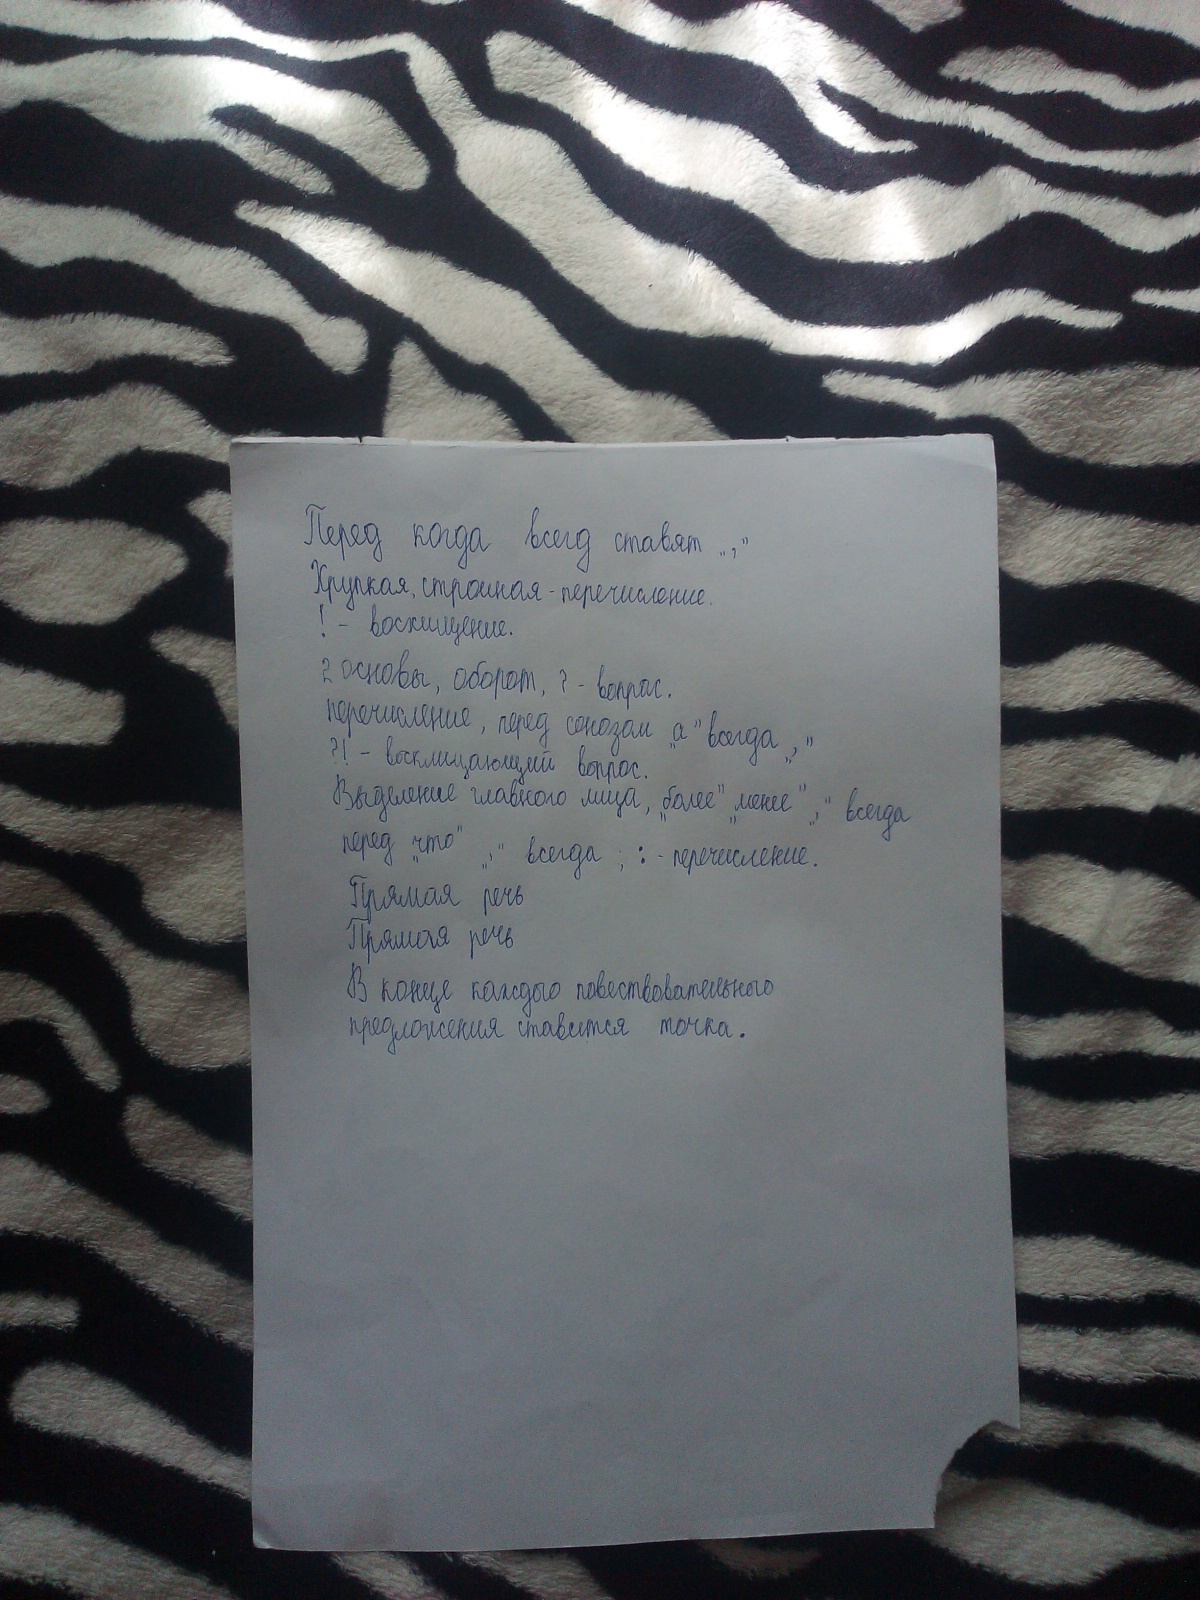 Перед когда всегд ставят „,"
Хрупкая, строиная - перечисление.
! - восхищение.
2 основы, оборот, ? - вопрос.
перечисление, перед союзом „а" всегда „,"
?! - восклицающий вопрос.
Выделение главного лица, „более" „менее" „," всегда
перед „что" „," всегда ; : - перечисление.
Прямая речь
Прямая речь
В конце каждого повествовательного
предложения ставится точка.